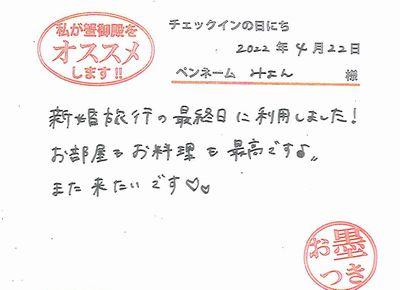 私が蟹御殿を
オススメ
します!!
チェックインの日にち
2022年4月22日
ペンネーム みよん 様
新婚旅行の最終日に利用しました!
お部屋もお料理も最高です♪〃
また来たいです♡♡
お墨
つき